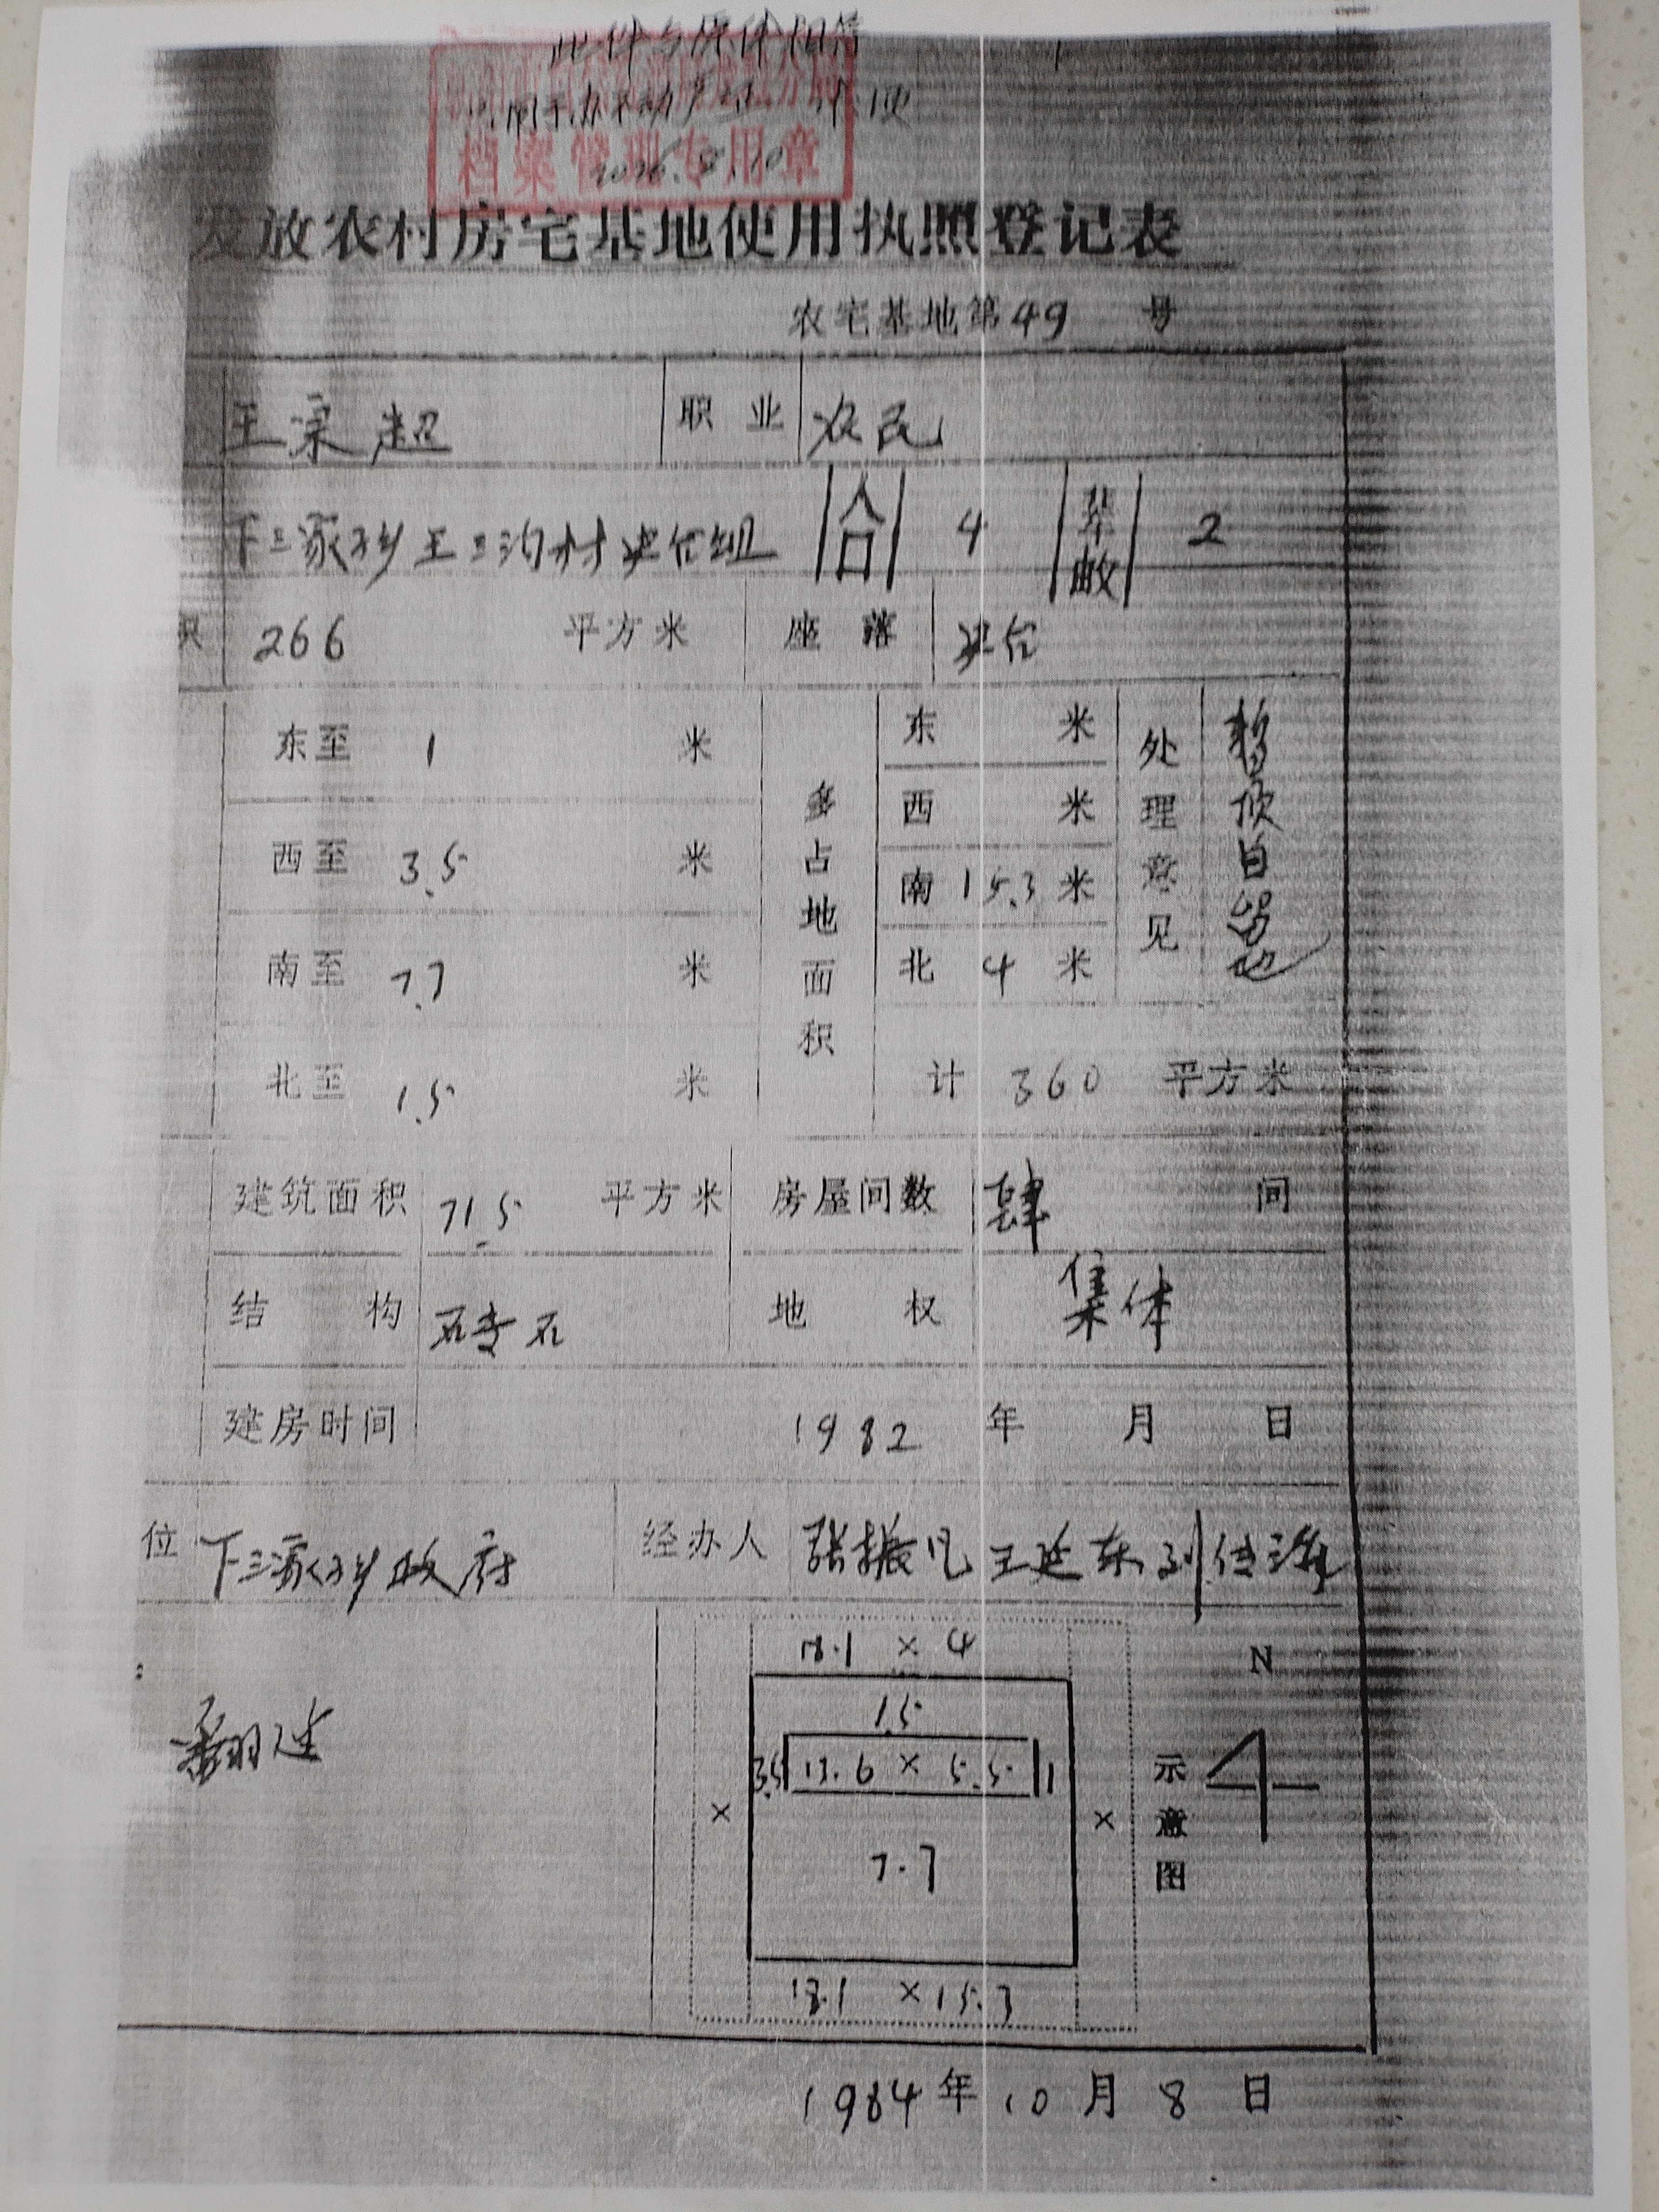 此件与原件相符
档案管理专用章
发放农村房宅基地使用执照登记表
农宅基地第49 号
王宗超 职业 农民
下三家乡王三沟村 组 人口 4 草亩 2
积 266 平方米 座落
东至 1 米 多占地面积 东 米 处理意见
西至 3.5 米 西 米
南至 7.7 米 南 15.3 米
北至 1.5 米 北 4 米
计 360 平方米
建筑面积 71.5 平方米 房屋间数 肆 间
结构 砖石 地权 集体
建房时间 1982 年 月 日
位 下三家乡政府 经办人 张振凡 王廷东
18.1 × 4
N
1.5
3.5 13.6 × 5.5 1
× ×
7.7
示意图
18.1 × 15.3
1984年10月8日